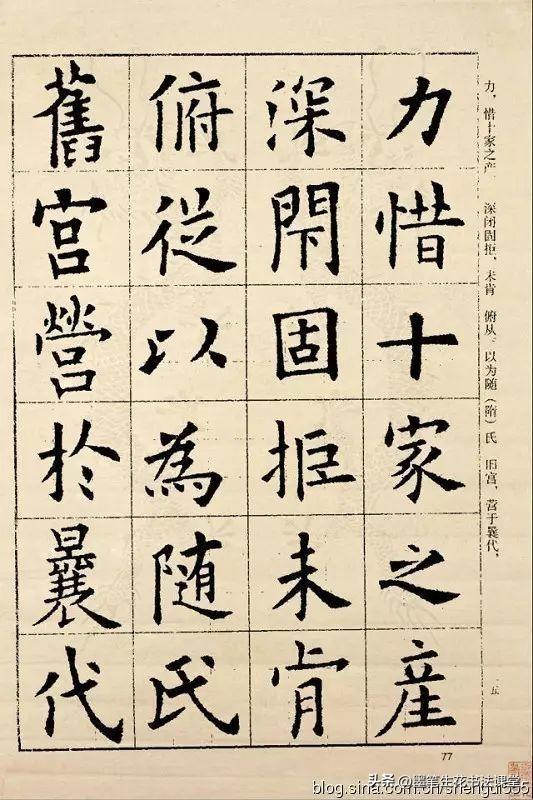 力惜十家之產
深閇固拒未肯
俯從以為随氏
舊宫營於曩代
力，惜十家之产 深闭固拒，未肯 俯从。以为随（隋）氏 旧宫，营于曩代，
五
77
头条 @墨笔生花书法课堂
blog.sina.com.cn/shengui555